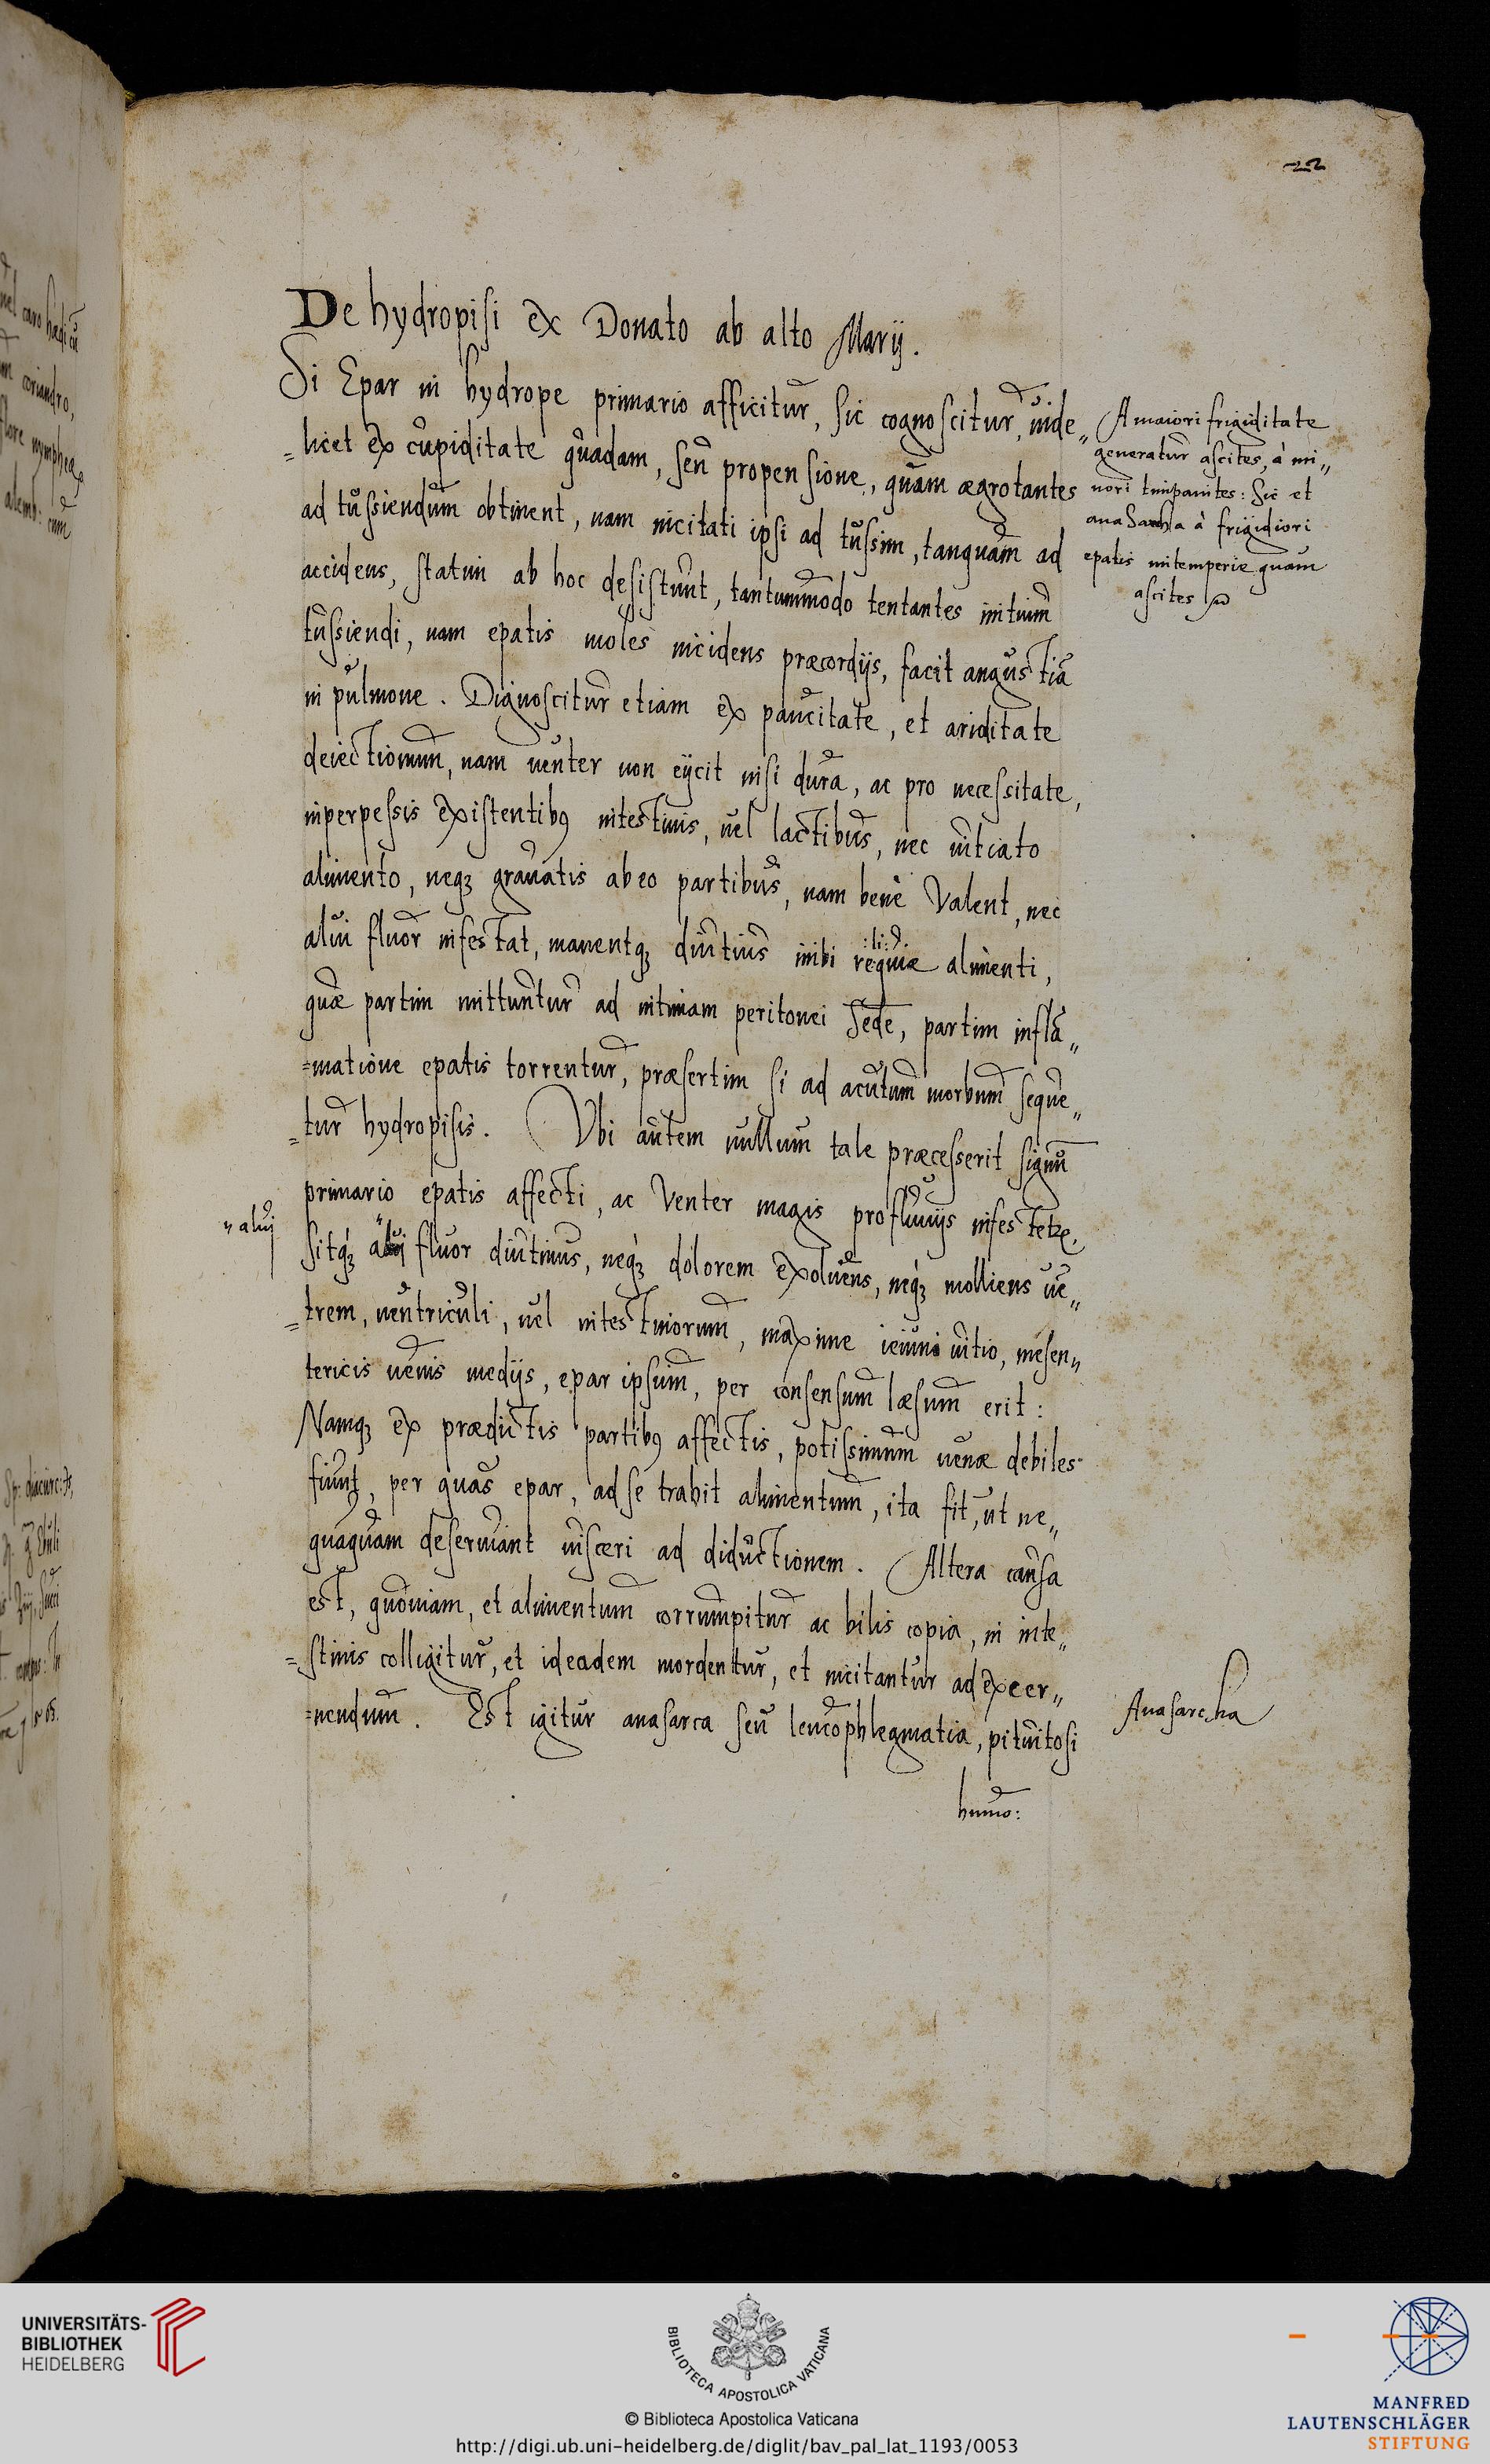 22
De hydropisi ex Donato ab alto Marij.
Si Epar in hydrope primario afficitur, sic cognoscitur, uide„
=licet ex cupiditate quadam, seu propensione, quam ægrotantes
ad tussiendum obtinent, nam incitati ipsi ad tussim, tanquam ad
accidens, statim ab hoc desistunt, tantummodo tentantes initium
tussiendi, nam epatis moles incidens præcordijs, facit angustiā
in pulmone. Dignoscitur etiam ex paucitate, et ariditate
deiectionum, nam uenter non eijcit nisi dura, ac pro necessitate,
inperpessis existentibꝰ intestinis, uel lactibus, nec uitiato
alimento, neqꝫ grauatis ab eo partibus, nam benè Valent, nec
alui fluor infestat, manentqꝫ diutius inibi requiæ alimenti,
:li:
quæ partim mittuntur ad intimam peritonei Sedē, partim inflā„
=matione epatis torrentur, præsertim si ad acutum morbum seque„
=tur hydropisis. Vbi autem nullum tale præcesserit signū
primario epatis affecti, ac Venter magis profluuijs infestetꝛ,
Sitqꝫ alui fluor diutinus, neqꝫ dolorem exoluens, neqꝫ molliens uē„
=trem, uentriculi, uel intestinorum, maxime ieiuni uitio, mesen„
tericis uenis medijs, epar ipsum, per consensum læsum erit:
Namqꝫ ex prædictis partibꝰ affectis, potissimum uenæ debiles
fiunt, per quas epar, ad se trahit alimentum, ita fit, ut ne„
quaquam deseruiant uisceri ad diductionem. Altera causa
est, quoniam, et alimentum corrumpitur ac bilis copia, in inte„
=stinis colligitur, et ideadem mordentur, et incitantur ad excer„
=nendum. Est igitur anasarca seu leucophlegmatia, pituitosi
humo:
A maiori frigiditate
generatur ascites, à mi„
nori timpanites: Sic et
anaSarcha à frigidiori
epatis intemperie quam
ascites
„alui
Anasarcha
UNIVERSITÄTS-
BIBLIOTHEK
HEIDELBERG
BIBLIOTECA APOSTOLICA VATICANA
© Biblioteca Apostolica Vaticana
http://digi.ub.uni-heidelberg.de/diglit/bav_pal_lat_1193/0053
MANFRED
LAUTENSCHLÄGER
STIFTUNG